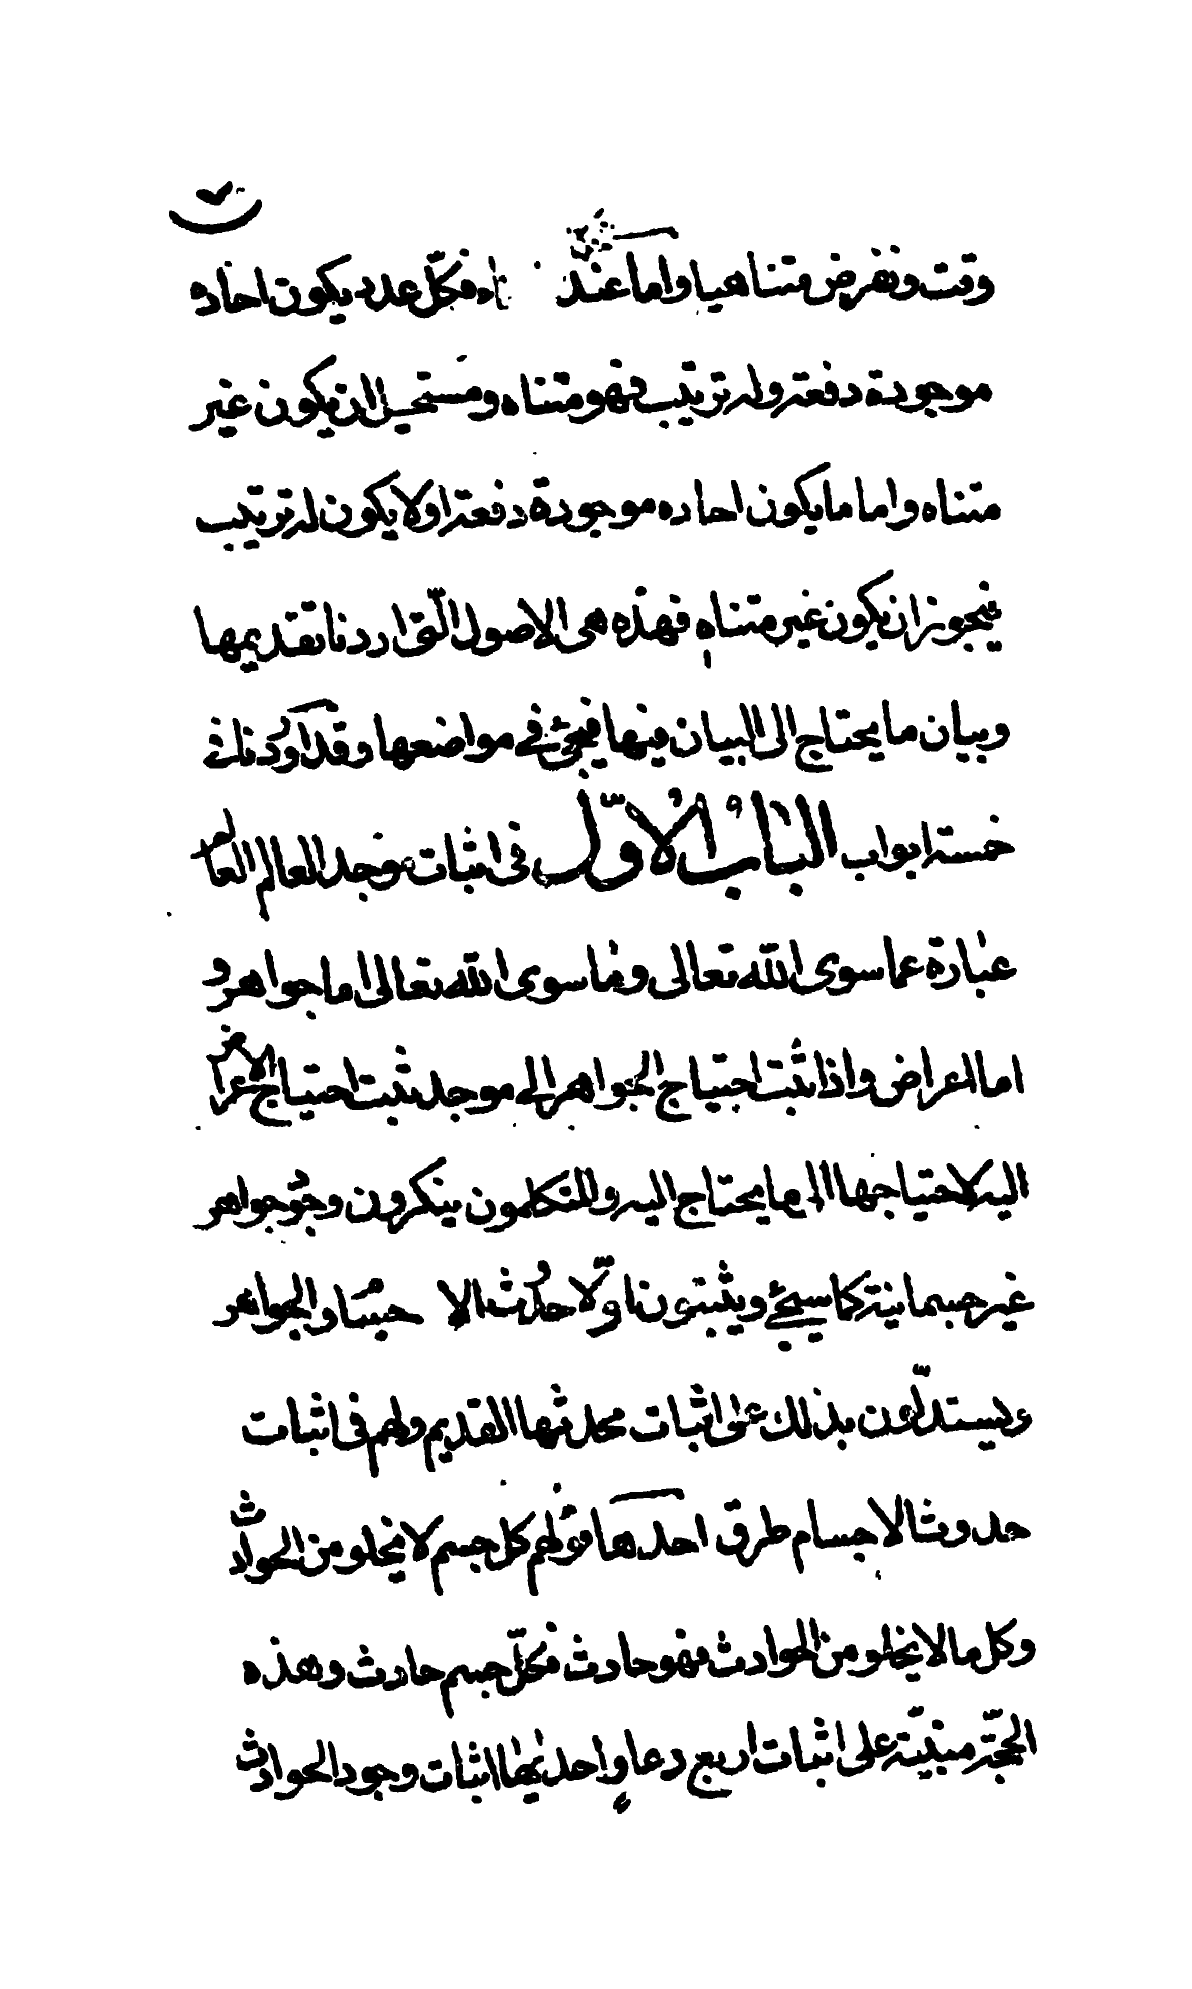 وقت ونفرض متناهيا واما عند فكل عدد يكون احاده
موجودة دفعة وله ترتيب فهو متناه ومستحيل ان يكون غير
متناه واما ما يكون احاده موجودة دفعة اولا يكون له ترتيب
فيجوز ان يكون غير متناه فهذه هى الاصول التى اردنا تقديمها
وبيان ما يحتاج الى البيان فيها فيجئ فى مواضعها وقد اوردنا فى
خمسة ابواب الباب الاول فى اثبات موجد العالم العالم
عبارة عما سوى الله تعالى وما سوى الله تعالى اما جواهر و
اما اعراض واذا ثبت احتياج الجواهر الى موجد ثبت احتياج الاعراض
اليه لاحتياجها الى ما يحتاج اليه والمتكلمون ينكرون وجود جواهر
غير جسمانية كما سيجئ ويثبتون اولا حدوث الاجسام والجواهر
ويستدلون بذلك على اثبات محدثها القديم ولهم فى اثبات
حدوث الاجسام طرق احدها قولهم كل جسم لا يخلو من الحوادث
وكل ما لا يخلو من الحوادث فهو حادث فكل جسم حادث وهذه
الحجة مبنية على اثبات اربع دعاو احديها اثبات وجود الحوادث